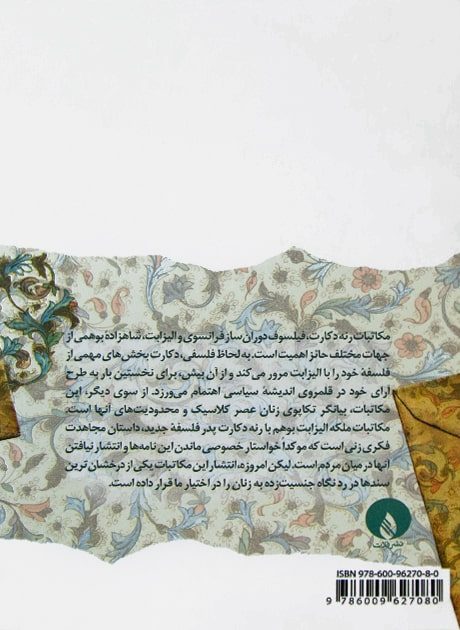 مکاتبات رنه دکارت، فیلسوف دوران‌ساز فرانسوی و الیزابت، شاهزاده بوهمی از
جهات مختلف حائز اهمیت است. به لحاظ فلسفی، دکارت بخش‌های مهمی از
فلسفه خود را با الیزابت مرور می‌کند و از آن پیش، برای نخستین بار به طرح
آرای خود در قلمروی اندیشهٔ سیاسی اهتمام می‌ورزد. از سوی دیگر، این
مکاتبات، بیانگر تکاپوی زنان عصر کلاسیک و محدودیت‌های آنها است.
مکاتبات ملکه الیزابت بوهم با رنه دکارت پدر فلسفه جدید، داستان مجاهدت
فکری زنی است که موکداً خواستار خصوصی ماندن این نامه‌ها و انتشار نیافتن
آنها در میان مردم است. لیکن امروزه، انتشار این مکاتبات یکی از درخشان ترین
سندها در رد نگاه جنسیت‌زده به زنان را در اختیار ما قرار داده است.
ISBN 978-600-96270-8-0
9 786009 627080